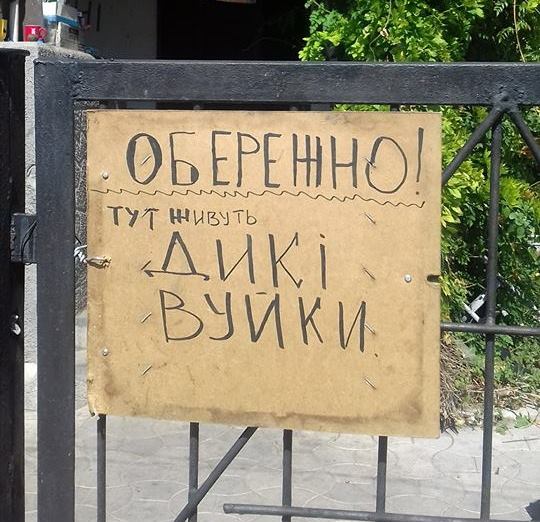 ОБЕРЕЖНО!
ТУТ ЖИВУТЬ
ДИКІ
ВУЙКИ.